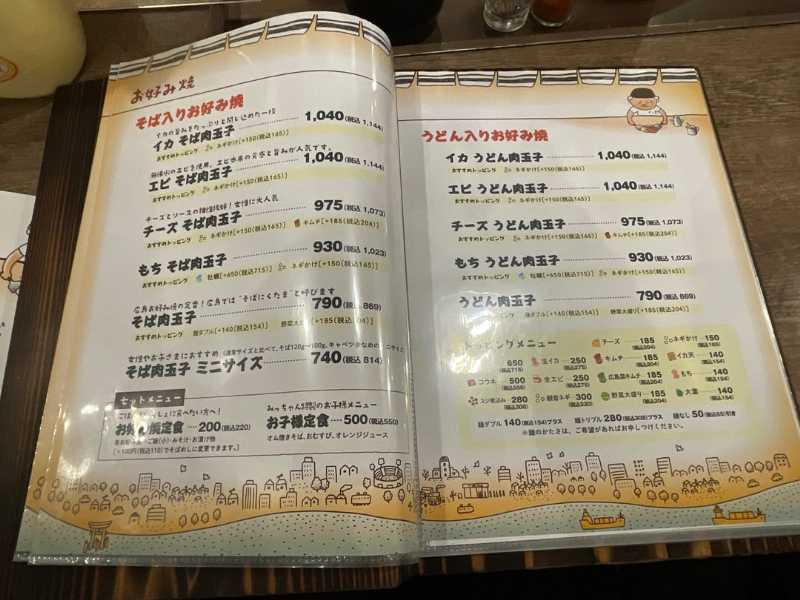 お好み焼
そば入りお好み焼
イカの旨みをたっぷりと閉じ込めた一枚
イカ そば肉玉子 1,040(税込 1,144)
おすすめトッピング ネギかけ[+150(税込165)]
エビ そば肉玉子 1,040(税込 1,144)
おすすめトッピング ネギかけ[+150(税込165)]
チーズとソースの相性抜群！女性に大人気
チーズ そば肉玉子 975(税込 1,073)
おすすめトッピング ネギかけ[+150(税込165)] キムチ[+185(税込204)]
もち そば肉玉子 930(税込 1,023)
おすすめトッピング 牡蠣[+650(税込715)] ネギかけ[+150(税込165)]
広島お好み焼の定番！広島では“そばにくたま”と呼びます
そば肉玉子 790(税込 869)
おすすめトッピング 麺ダブル[+140(税込154)] 野菜大盛り[+185(税込204)]
女性やお子さまにおすすめ
そば肉玉子 ミニサイズ 740(税込 814)
セットメニュー
お好み焼定食 200(税込220)
[+100円(税込110)でそばめしに変更できます。]
みっちゃん特製のお子様メニュー
お子様定食 500(税込550)
オム焼きそば、おむすび、オレンジジュース
うどん入りお好み焼
イカ うどん肉玉子 1,040(税込 1,144)
おすすめトッピング ネギかけ[+150(税込165)]
エビ うどん肉玉子 1,040(税込 1,144)
おすすめトッピング ネギかけ[+150(税込165)]
チーズ うどん肉玉子 975(税込 1,073)
おすすめトッピング ネギかけ[+150(税込165)] キムチ[+185(税込204)]
もち うどん肉玉子 930(税込 1,023)
おすすめトッピング 牡蠣[+650(税込715)] ネギかけ[+150(税込165)]
うどん肉玉子 790(税込 869)
おすすめトッピング 麺ダブル[+140(税込154)] 野菜大盛り[+185(税込204)]
トッピングメニュー
650(税込715) 生イカ 250(税込275) チーズ 185(税込204) ネギかけ 150(税込165)
コウネ 500(税込550) 生エビ 250(税込275) キムチ 185(税込204) イカ天 140(税込154)
スジ煮込み 280(税込308) 観音ネギ 300(税込330) 広島菜キムチ 185(税込204) もち 140(税込154)
野菜大盛り 185(税込204) 大葉 140(税込154)
麺ダブル 140(税込154)プラス 麺トリプル 280(税込308)プラス 麺なし 50(税込55)引き
※麺のかたさは、ご希望があればお申しつけください。